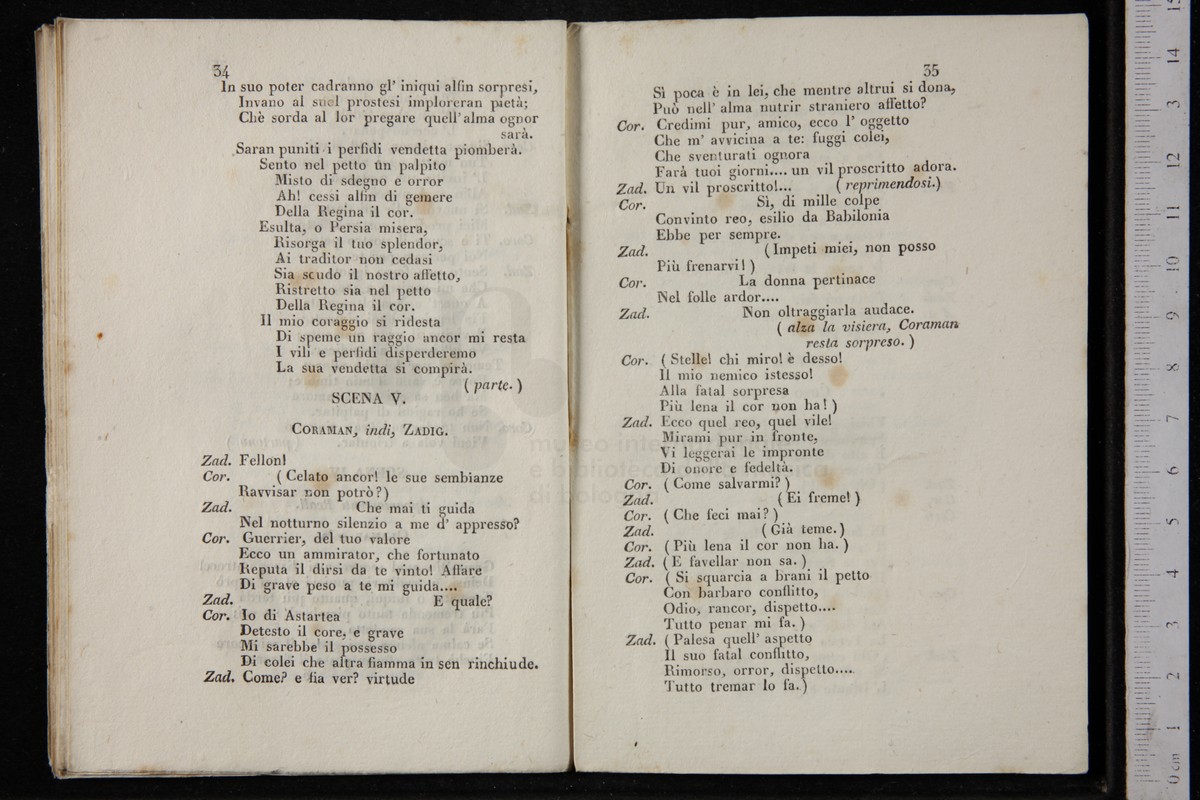 34
In suo poter cadranno gl' iniqui alfin sorpresi,
Invano al suol prostesi imploreran pietà;
Chè sorda al lor pregare quell' alma ognor
sarà.
Saran puniti i perfidi vendetta piomberà.
Sento nel petto un palpito
Misto di sdegno e orror
Ah! cessi alfin di gemere
Della Regina il cor.
Esulta, o Persia misera,
Risorga il tuo splendor,
Ai traditor non cedasi
Sia scudo il nostro affetto,
Ristretto sia nel petto
Della Regina il cor.
Il mio coraggio si ridesta
Di speme un raggio ancor mi resta
I vili e perfidi disperderemo
La sua vendetta si compirà.
( parte. )
SCENA V.
CORAMAN, indi, ZADIG.
Zad. Fellon!
Cor. ( Celato ancor! le sue sembianze
Ravvisar non potrò? )
Zad. Che mai ti guida
Nel notturno silenzio a me d' appresso?
Cor. Guerrier, del tuo valore
Ecco un ammirator, che fortunato
Reputa il dirsi da te vinto! Affare
Di grave peso a te mi guida....
Zad. E quale?
Cor. Io di Astartea
Detesto il core, e grave
Mi sarebbe il possesso
Di colei che altra fiamma in sen rinchiude.
Zad. Come? e fia ver? virtude
35
Sì poca è in lei, che mentre altrui si dona,
Può nell' alma nutrir straniero affetto?
Cor. Credimi pur, amico, ecco l' oggetto
Che m' avvicina a te: fuggi colei,
Che sventurati ognora
Farà tuoi giorni.... un vil proscritto adora.
Zad. Un vil proscritto!... ( reprimendosi.)
Cor. Sì, di mille colpe
Convinto reo, esilio da Babilonia
Ebbe per sempre.
Zad. (Impeti miei, non posso
Più frenarvi! )
Cor. La donna pertinace
Nel folle ardor....
Zad. Non oltraggiarla audace.
( alza la visiera, Coraman
resta sorpreso. )
Cor. ( Stelle! chi miro! è desso!
Il mio nemico istesso!
Alla fatal sorpresa
Più lena il cor non ha! )
Zad. Ecco quel reo, quel vile!
Mirami pur in fronte,
Vi leggerai le impronte
Di onore e fedeltà.
Cor. ( Come salvarmi? )
Zad. ( Ei freme! )
Cor. ( Che feci mai? )
Zad. ( Già teme. )
Cor. ( Più lena il cor non ha. )
Zad. ( E favellar non sa. )
Cor. ( Si squarcia a brani il petto
Con barbaro conflitto,
Odio, rancor, dispetto....
Tutto penar mi fa. )
Zad. ( Palesa quell' aspetto
Il suo fatal conflitto,
Rimorso, orror, dispetto.....
Tutto tremar lo fa.)